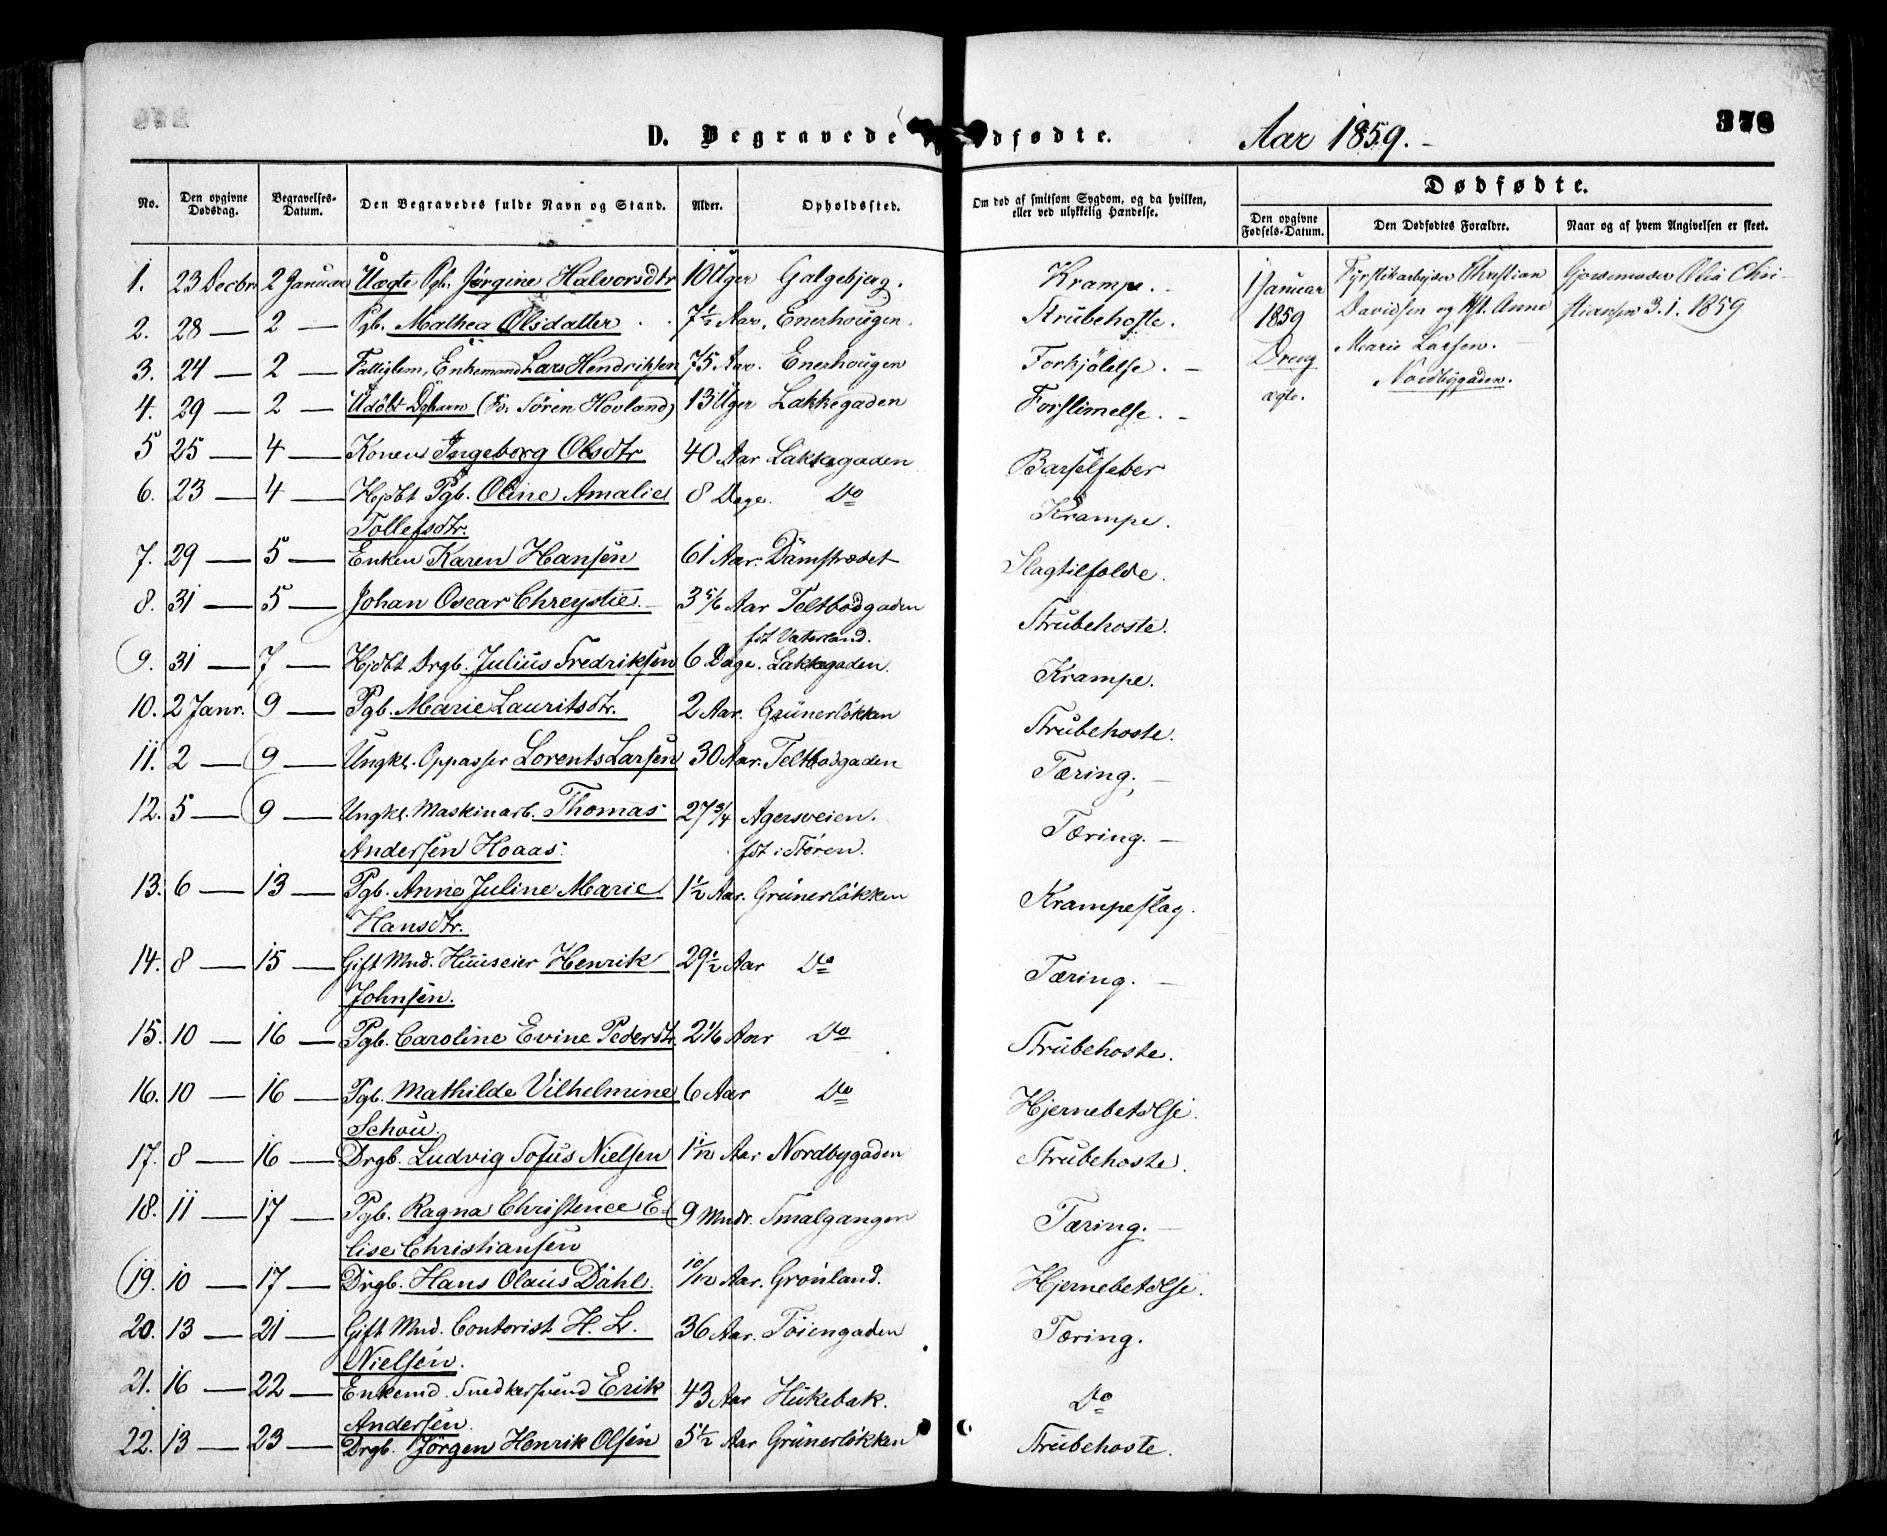 D. Begravede dfødte. Aar 1859. 378
No. Den opgivne Dødsdag. Begravelses-Datum. Den Begravedes fulde Navn og Stand. Alder. Opholdssted. Om død af smitsom Sygdom, og da hvilken, eller ved ulykkelig Hændelse. Dødfødte.
Den opgivne Fødsels-Datum. Den Dødfødtes Forældre. Naar og af hvem Angivelsen er skeet.
1. 23 Decbr 2 Januar Uægte Pgb. Jørgine Halvorsdtr 10 Uger Galgebjerg. Krampe. 1 Januar Fyrstikarbejder Christian Gjordemoder Olia Chri-
2. 28 — 2 — Pgb. Mathea Olsdatter 7½ Aar. Enerhougen. Strubehoste. 1859 Davidsen og Hst. Anne stiansen 3.1.1859
3. 24 — 2 — Fattiglem, Enkemand Lars Hendriksen 75 Aar. Enerhougen Forkjølelse. Dreng Marie Larsen.
4. 29 — 2 — Udøbt Dgbarn (Fr. Søren Hovland) 13 Uger Lakkegaden Forslimelse. ægte. Nordbygaden.
5 25 — 4 — Konen Ingeborg Olsdtr 40 Aar Lakkegaden Barselfeber
6. 23 — 4 — Hjdbt Pgb. Oline Amalie 8 Dage. Do Krampe.
Tollefsdtr.
7. 29 — 5 — Enken Karen Hansen 61 Aar. Damstrædet Slagtilfælde.
8. 31 — 5 — Johan Oscar Chreystie. 3 5/6 Aar Teltbodgaden Strubehoste.
fdt Vaterland.
9. 31 — 7 — Hjdbt Drgb. Julius Fredriksen 6 Dage. Lakkegaden. Krampe.
10. 2 Janr. 9 — Pgb. Marie Lauritsdtr. 2 Aar. Grünerløkken Strubehoste.
11. 2 — 9 — Ungkl. Oppasser Lorents Larsen 30 Aar. Teltbodgaden Tæring. —
12. 5 — 9 — Ungkl. Maskinarb. Thomas 27 3/4 Agersveien. Tæring. —
Andersen Hoaas. fdt i Støren.
13. 6 — 13 — Pgb. Anne Juline Marie 1½ Aar. Grünerløkken Krampeslag.
Hansdtr.
14. 8 — 15 — Gift Mnd. Huuseier Henrik 29½ Aar Do Tæring. —
Johnsen.
15. 10 — 16 — Pgb. Caroline Evine Pedersdtr. 2 1/6 Aar Do Strubehoste.
16. 10 — 16 — Pgb. Mathilde Vilhelmine 6 Aar Do Hjernebetdlse.
Schou.
17. 8 — 16 — Drgb. Ludvig Sofus Nielsen 1 1/12 Aar Nordbygaden Strubehoste.
18. 11 — 17 — Pgb. Ragna Christence E- 9 Mndr. Smalgangen Tæring. —
lise Christiansen
19. 10 — 17 — Drgb. Hans Olaus Dahl. 10/12 Aar. Grønland. Hjernebetdlse.
20. 13 — 21 — Gift Mnd. Contorist H. L. 36 Aar. Tøiengaden Tæring.
Nielsen.
21. 16 — 22 — Enkemd. Snedkersvend Erik 43 Aar Hukebak. Do
Andersen.
22. 13 — 23 — Drgb. Jørgen Henrik Olsen 5½ Aar Grünerløkken Strubehoste.